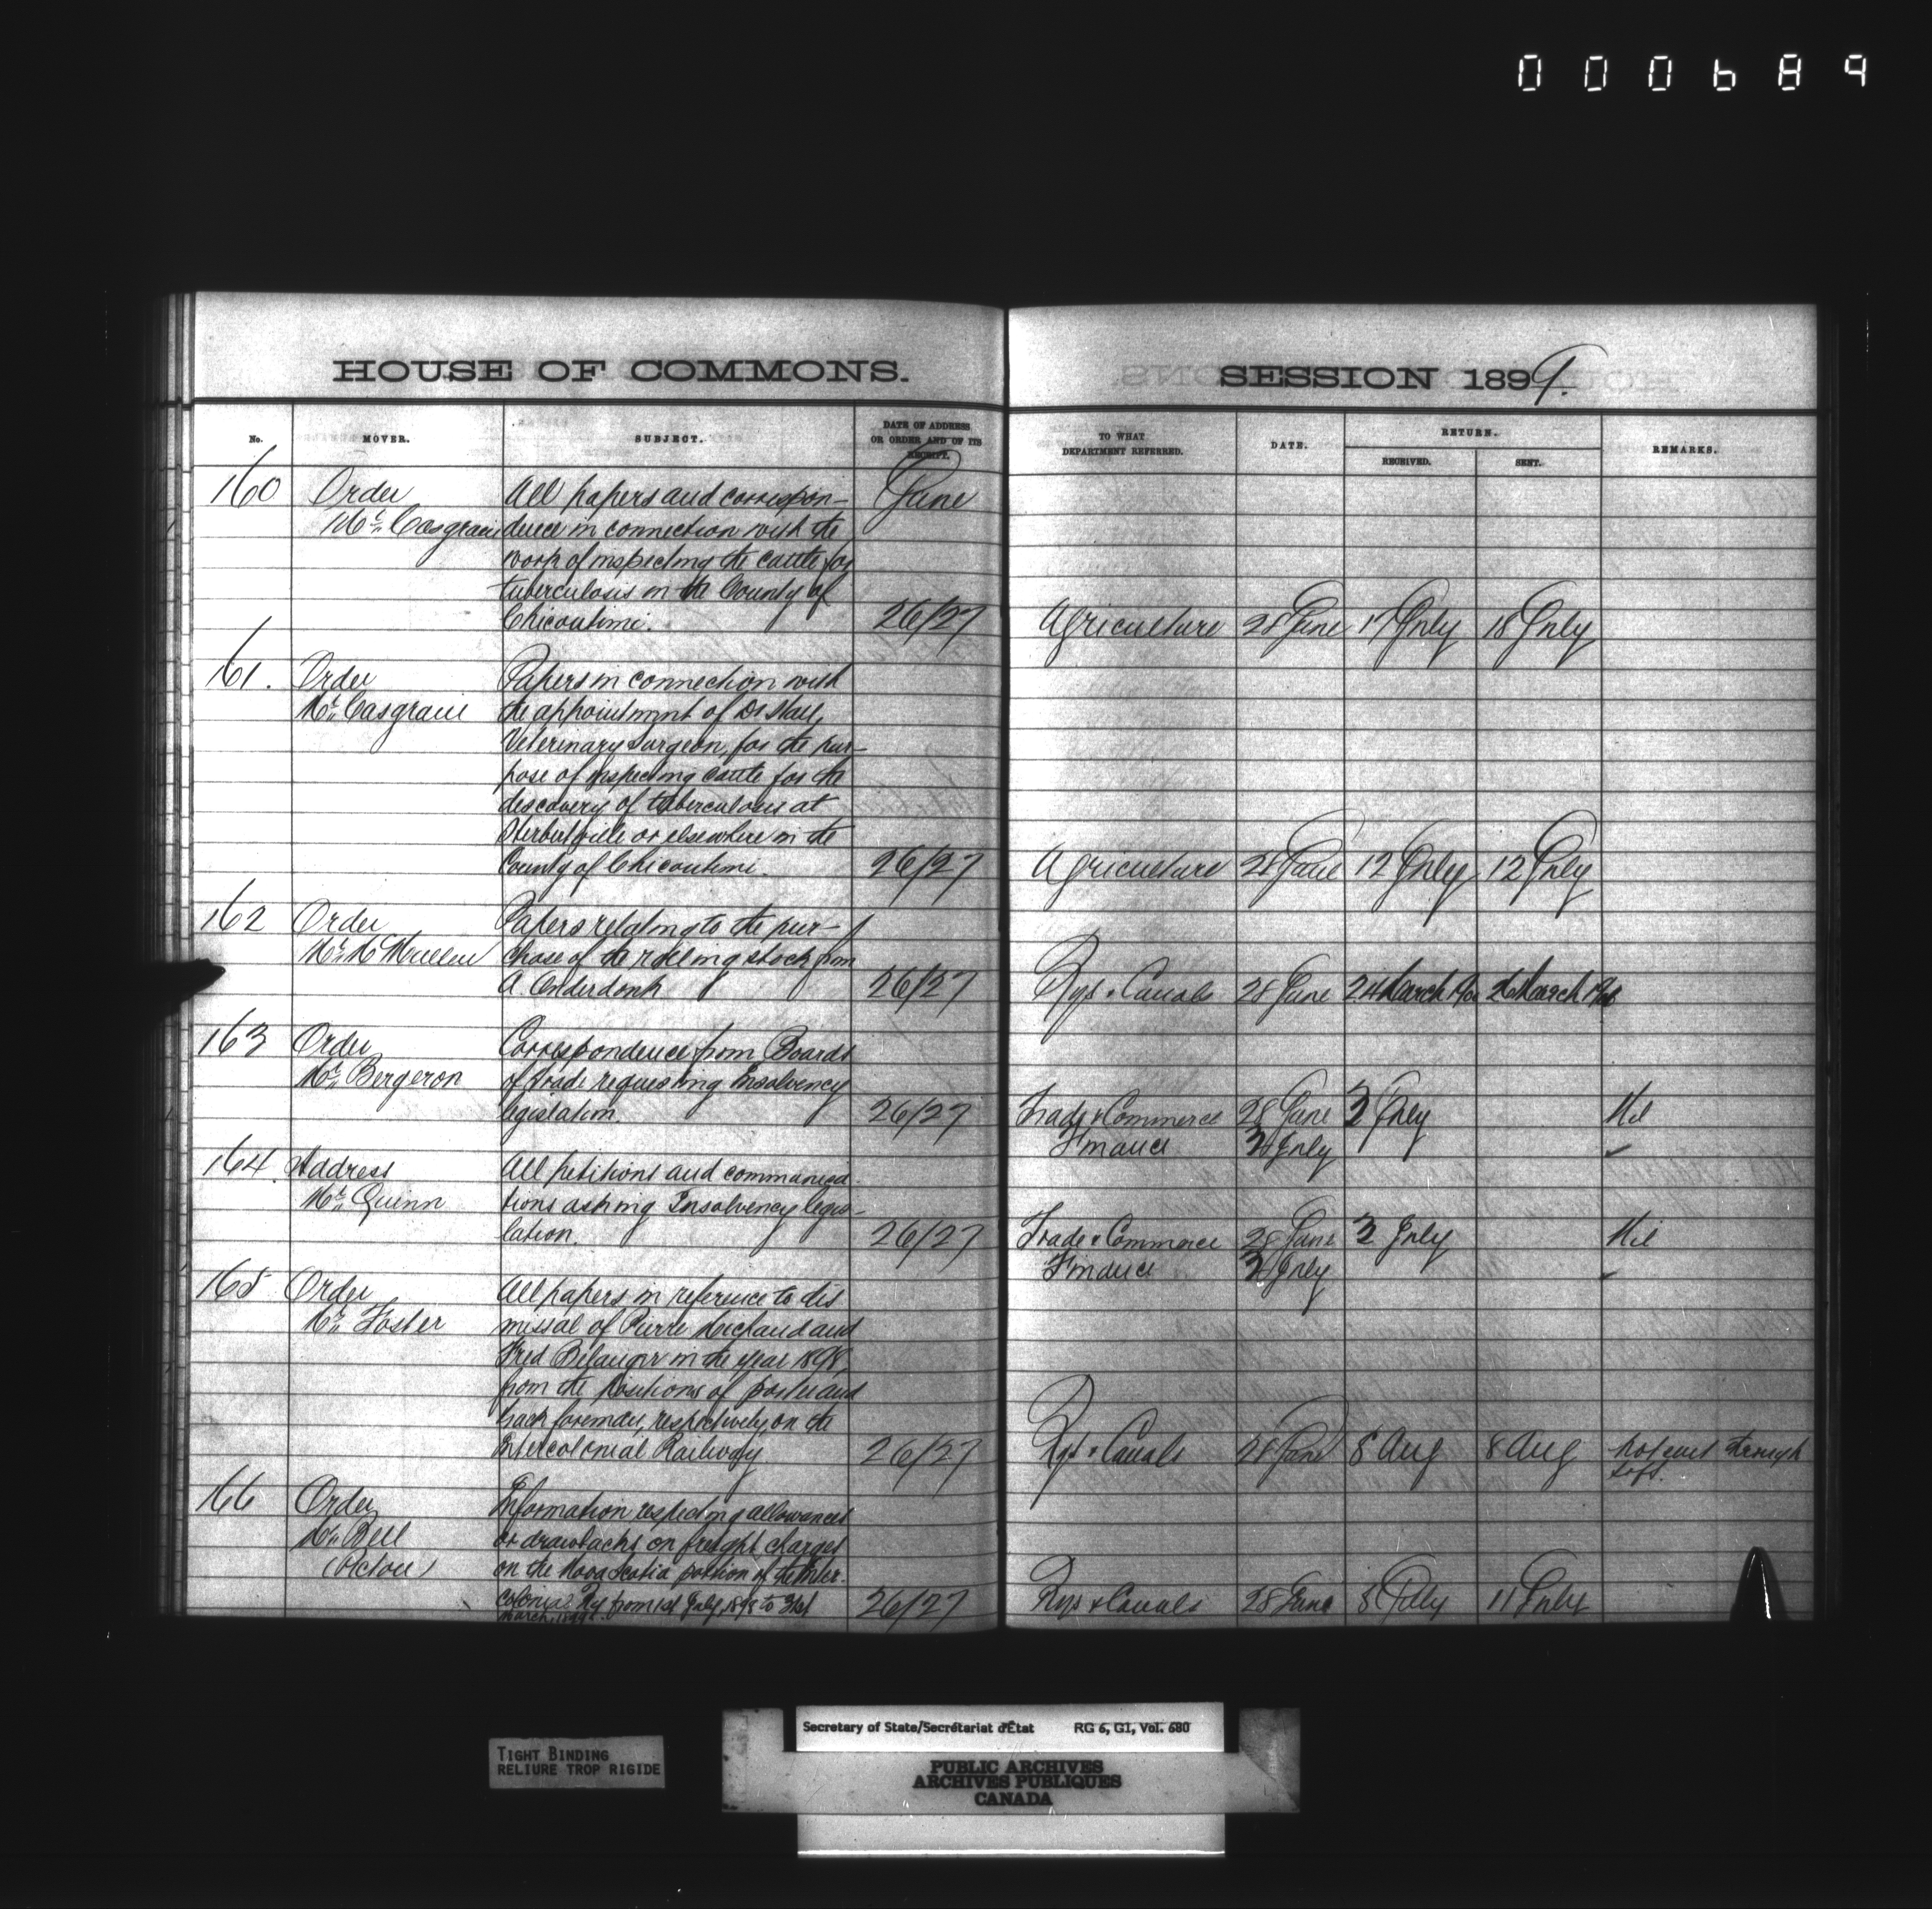 000689
HOUSE OF COMMONS.
SESSION 1899.
No. MOVER. SUBJECT. DATE OF ADDRESS OR ORDER AND OF ITS RECEIPT.
TO WHAT DEPARTMENT REFERRED. DATE. RETURN. RECEIVED. SENT. REMARKS.
160 Order All papers and correspon- June
Mr. Casgrain dence in connection with the
work of inspecting the cattle for
tuberculosis in the County of
Chicoutimi. 26/27 Agriculture 28 June 17 July 18 July
161. Order Papers in connection with
Mr. Casgrain the appointment of Dr Hall,
Veterinary Surgeon, for the pur-
pose of inspecting cattle for the
discovery of tuberculosis at
Hébertville or elsewhere in the
County of Chicoutimi. 26/27 Agriculture 28 June 12 July 12 July
162 Order Papers relating to the pur-
Mr. McMullen chase of the rolling stock from
A. Onderdonk 26/27 Rys & Canals 28 June 24 March 1900 26 March 1900
163 Order Correspondence from Boards
Mr. Bergeron of trade requesting Insolvency
legislation. 26/27 Trade & Commerce 28 June 3 July Nil
Finance July
164. Address All petitions and communica-
Mr. Quinn tions asking Insolvency legis-
lation. 26/27 Trade & Commerce 28 June 3 July Nil
Finance July
165 Order All papers in reference to dis
Mr. Foster missal of Pierre Michaud and
Fred Bélanger in the year 1898,
from the positions of porter and
track foreman, respectively, on the
Intercolonial Railway 26/27 Rys & Canals 28 June 8 Aug 8 Aug not sent through
166 Order Information respecting allowances
Mr. Bell or drawbacks on freight charges
(Pictou) on the Nova Scotia portion of the Inter-
colonial Ry from 1st July, 1898 to 31st 26/27 Rys & Canals 28 June 8 July 11 July
March, 1899.
TIGHT BINDING
RELIURE TROP RIGIDE
Secretary of State/Secrétariat d'État RG 6, G1, Vol. 680
PUBLIC ARCHIVES
ARCHIVES PUBLIQUES
CANADA